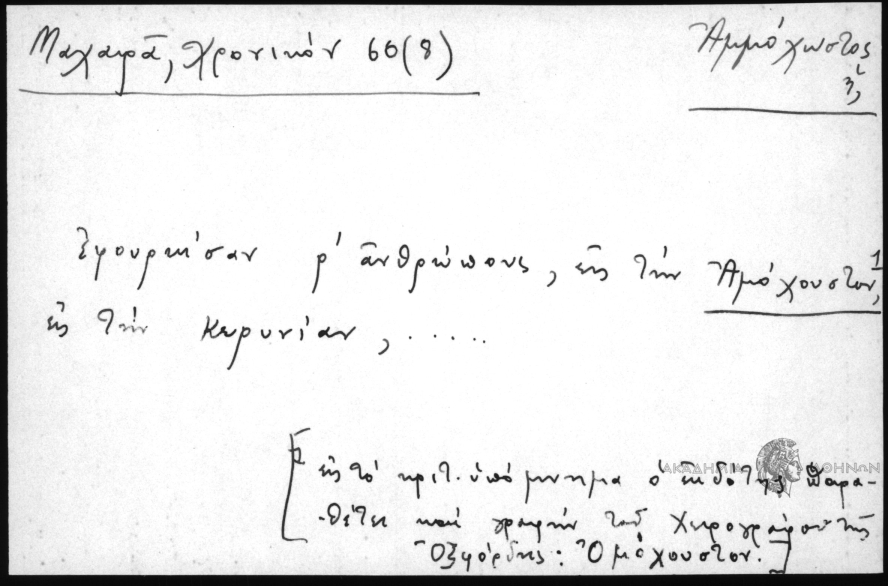 Μαχαιρᾶ, Χρονικόν 66(8)
Ἀμμόχωστος
ἡ
Ἐφουρκίσαν ρ' ἀνθρώπους, εἰς τὴν Ἀμόχουστον,¹
εἰς τὴν Κερυνίαν, .....
[εἰς τὸ κριτ. ὑπόμνημα ὁ ἐκδότης παρα-
-θέτει καὶ γραφὴν τοῦ Χειρογράφου τῆς
Ὀξφόρδης: Ὀμόχουστον.]
ΑΚΑΔΗΜΙΑ ΑΘΗΝΩΝ